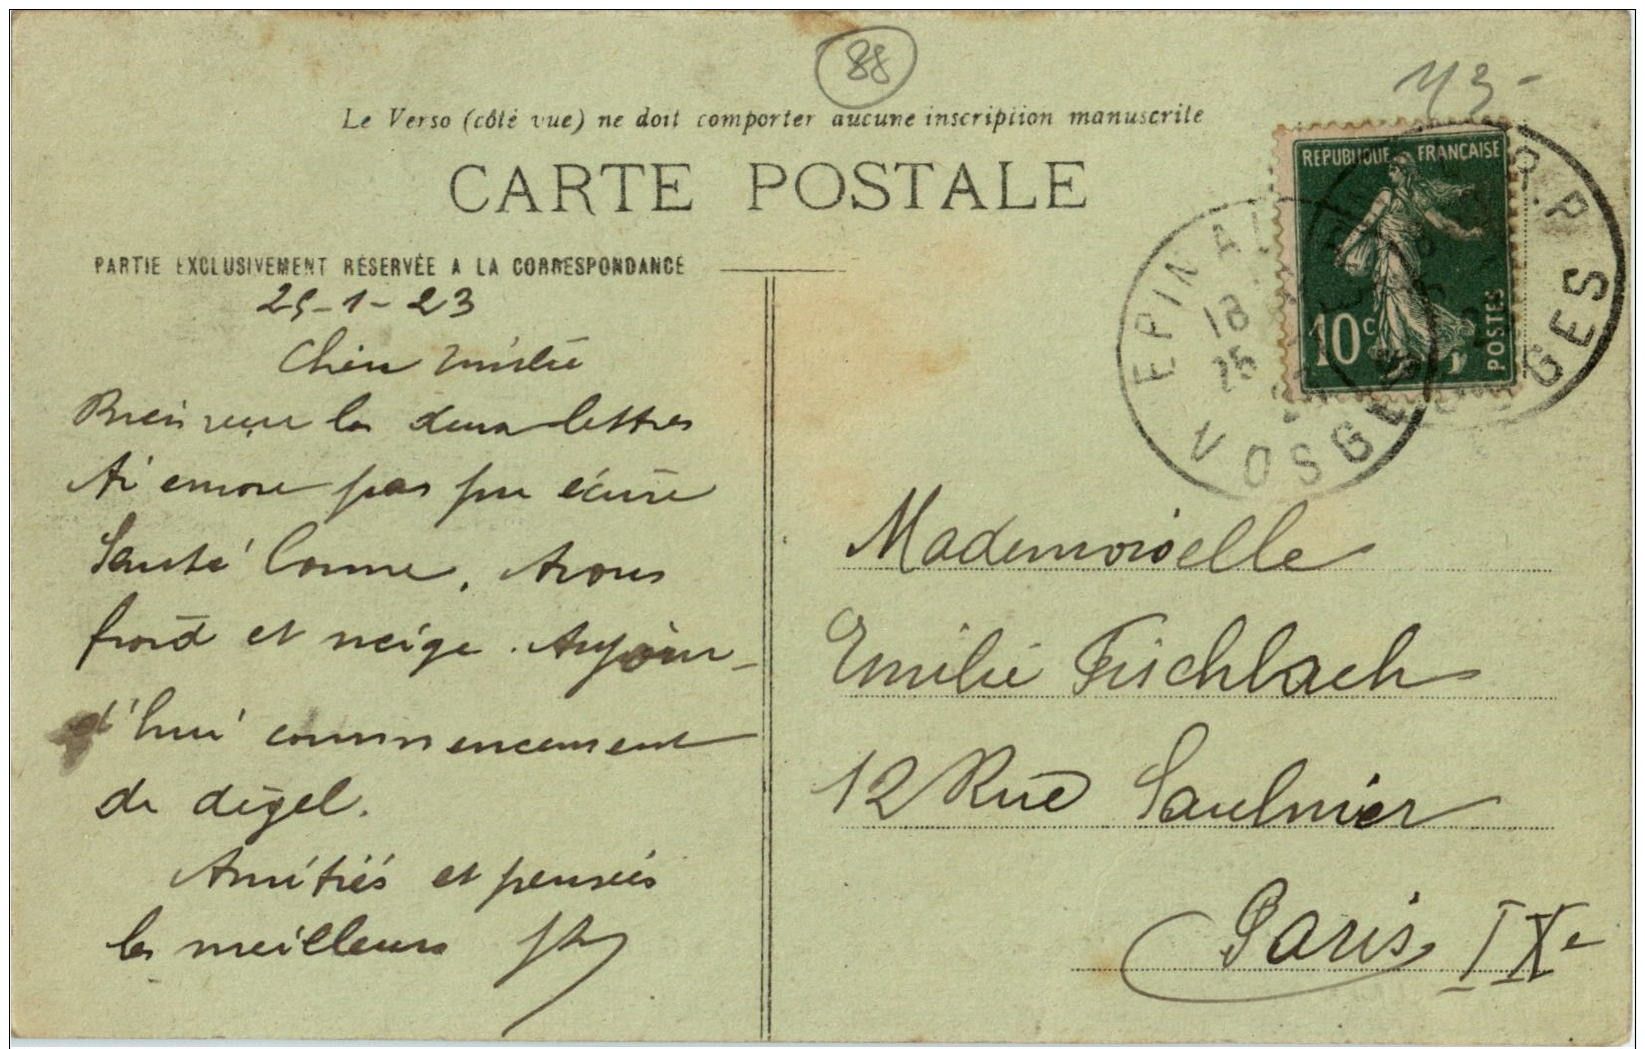 88
113-
Le Verso (côté vue) ne doit comporter aucune inscription manuscrite
CARTE POSTALE
REPUBLIQUE FRANÇAISE
10c
POSTES
EPINAL
18
25
VOSGES
PARTIE EXCLUSIVEMENT RÉSERVÉE A LA CORRESPONDANCE
25-1-23
Chère
Bien reçu les deux lettres
Ai encore pas pu écrire
Santé bonne. Avons
froid et neige. Aujour-
d'hui commencement
de dégel.
Amitiés et pensées
les meilleurs
Mademoiselle
Emilie Fischbach
12 Rue Saulnier
Paris IXe